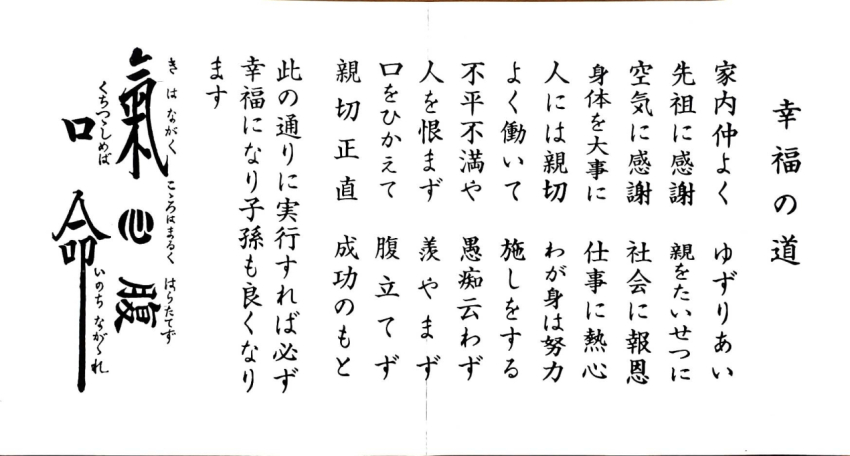 幸福の道
家内仲よく ゆずりあい
先祖に感謝 親をたいせつに
空気に感謝 社会に報恩
身体を大事に 仕事に熱心
人には親切 わが身は努力
よく働いて 施しをする
不平不満や 愚痴云わず
人を恨まず 羨やまず
口をひかえて 腹立てず
親切正直 成功のもと
此の通りに実行すれば必ず
幸福になり子孫も良くなり
ます
きはながく こゝろはまるく はらたてず
氣心腹
くちつゝしめば いのちながゝれ
口命